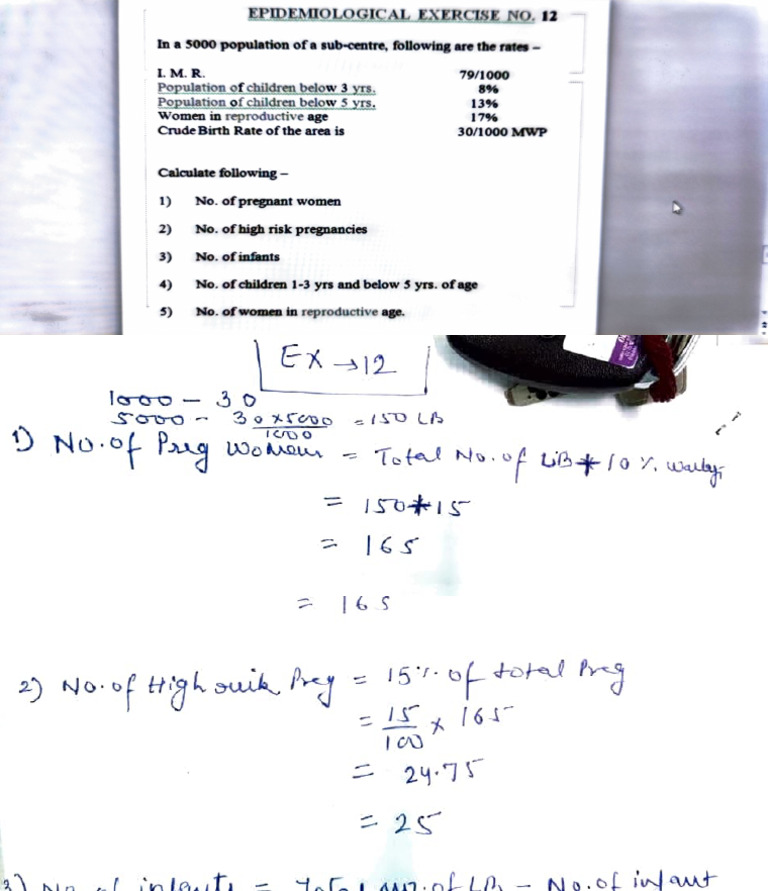 EPIDEMIOLOGICAL EXERCISE NO. 12
In a 5000 population of a sub-centre, following are the rates –
I. M. R. 79/1000
Population of children below 3 yrs. 8%
Population of children below 5 yrs. 13%
Women in reproductive age 17%
Crude Birth Rate of the area is 30/1000 MWP
Calculate following –
1) No. of pregnant women
2) No. of high risk pregnancies
3) No. of infants
4) No. of children 1-3 yrs and below 5 yrs. of age
5) No. of women in reproductive age.
Ex → 12
1000 – 30
5000 – 30×5000/1000 = 150 LB
1) No. of Preg Women = Total No. of LB + 10 %
= 150+15
= 165
= 165
2) No. of High Preg = 15% of total Preg
= 15/100 × 165
= 24.75
= 25
3) No of infants = Total no. of LB – No. of infant